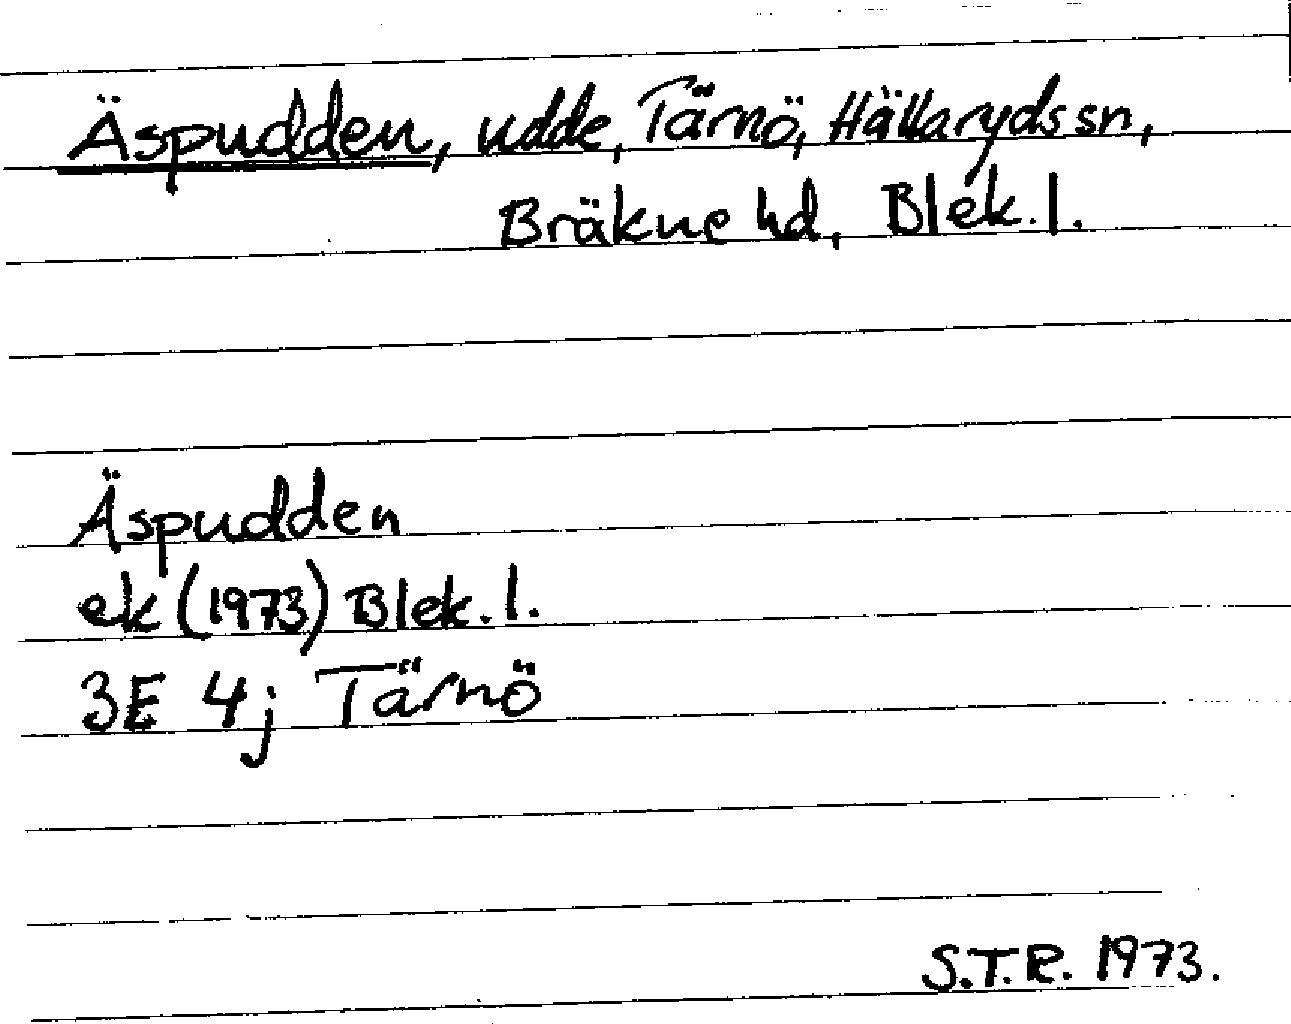 Äspudden, udde, Tärnö, Hällaryds sn,
Bräkne hd, Blek. l.
Äspudden
ek (1973) Blek. l.
3E 4j Tärnö
S.T.R. 1973.